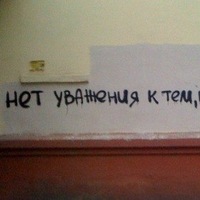 нет уважения к тем,